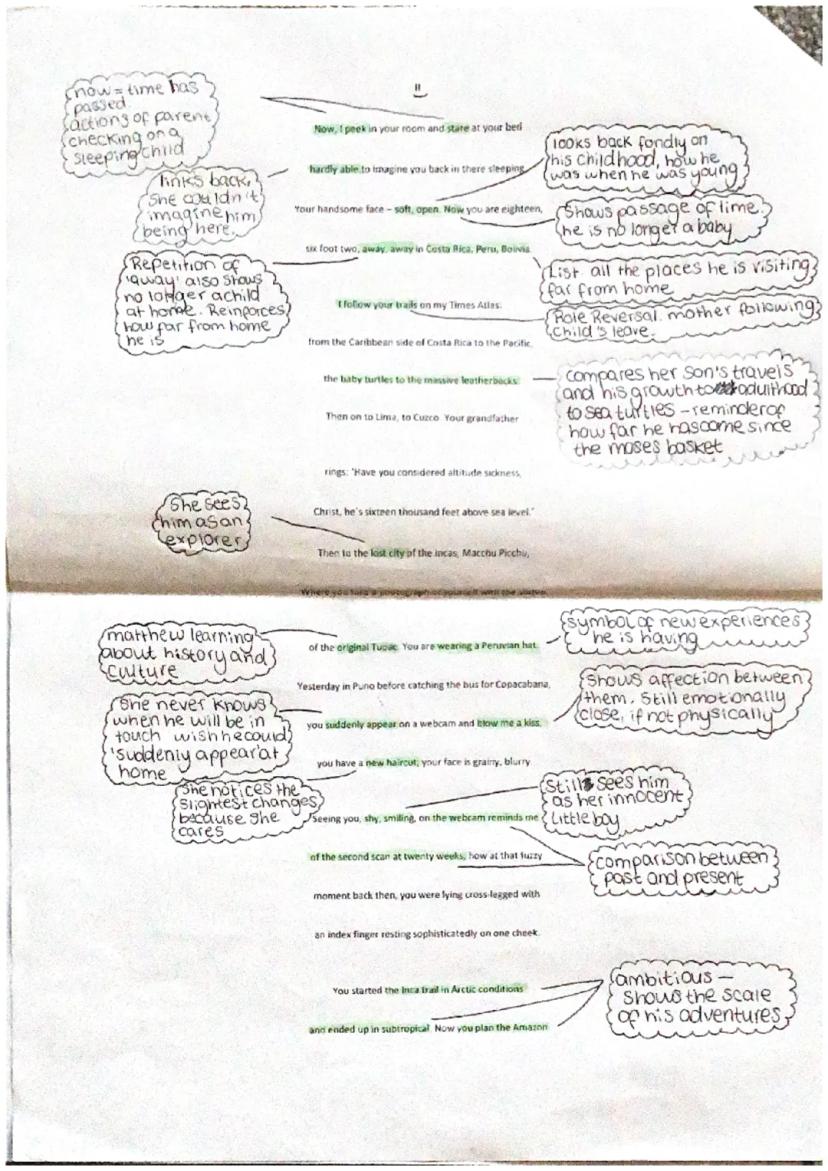 now = time has
passed.
actions of parent
checking on a
sleeping child
II
Now, I peek in your room and stare at your bed
looks back fondly on
his childhood, how he
was when he was young
hardly able to imagine you back in there sleeping.
links back,
she couldn't
imagine him
being here.
Your handsome face – soft, open. Now you are eighteen,
shows passage of time.
he is no longer a baby
six foot two, away, away in Costa Rica, Peru, Bolivia.
Repetition of
'away' also shows
no longer a child
at home. Reinforces
how far from home
he is
List all the places he is visiting
far from home
I follow your trails on my Times Atlas:
Role Reversal. mother following
child's leave.
from the Caribbean side of Costa Rica to the Pacific,
the baby turtles to the massive leatherbacks.
compares her son's travels
and his growth to adulthood
to sea turtles – reminder of
how far he has come since
the moses basket
Then on to Lima, to Cuzco. Your grandfather
rings: 'Have you considered altitude sickness,
Christ, he's sixteen thousand feet above sea level.'
she sees
him as an
explorer
Then to the lost city of the Incas, Macchu Picchu,
Where you take a photograph of yourself with the statue
of the original Tupac. You are wearing a Peruvian hat.
matthew learning
about history and
culture
symbol of new experiences
he is having
Yesterday in Puno before catching the bus for Copacabana,
you suddenly appear on a webcam and blow me a kiss.
she never knows
when he will be in
touch wish he could
'suddenly appear' at
home
shows affection between
them. Still emotionally
close, if not physically
you have a new haircut; your face is grainy, blurry
she notices the
slightest changes
because she
cares
Seeing you, shy, smiling, on the webcam reminds me
Still sees him
as her innocent
little boy
of the second scan at twenty weeks, how at that fuzzy
comparison between
past and present
moment back then, you were lying cross-legged with
an index finger resting sophisticatedly on one cheek.
You started the Inca trail in Arctic conditions
ambitious –
shows the scale
of his adventures
and ended up in subtropical. Now you plan the Amazon